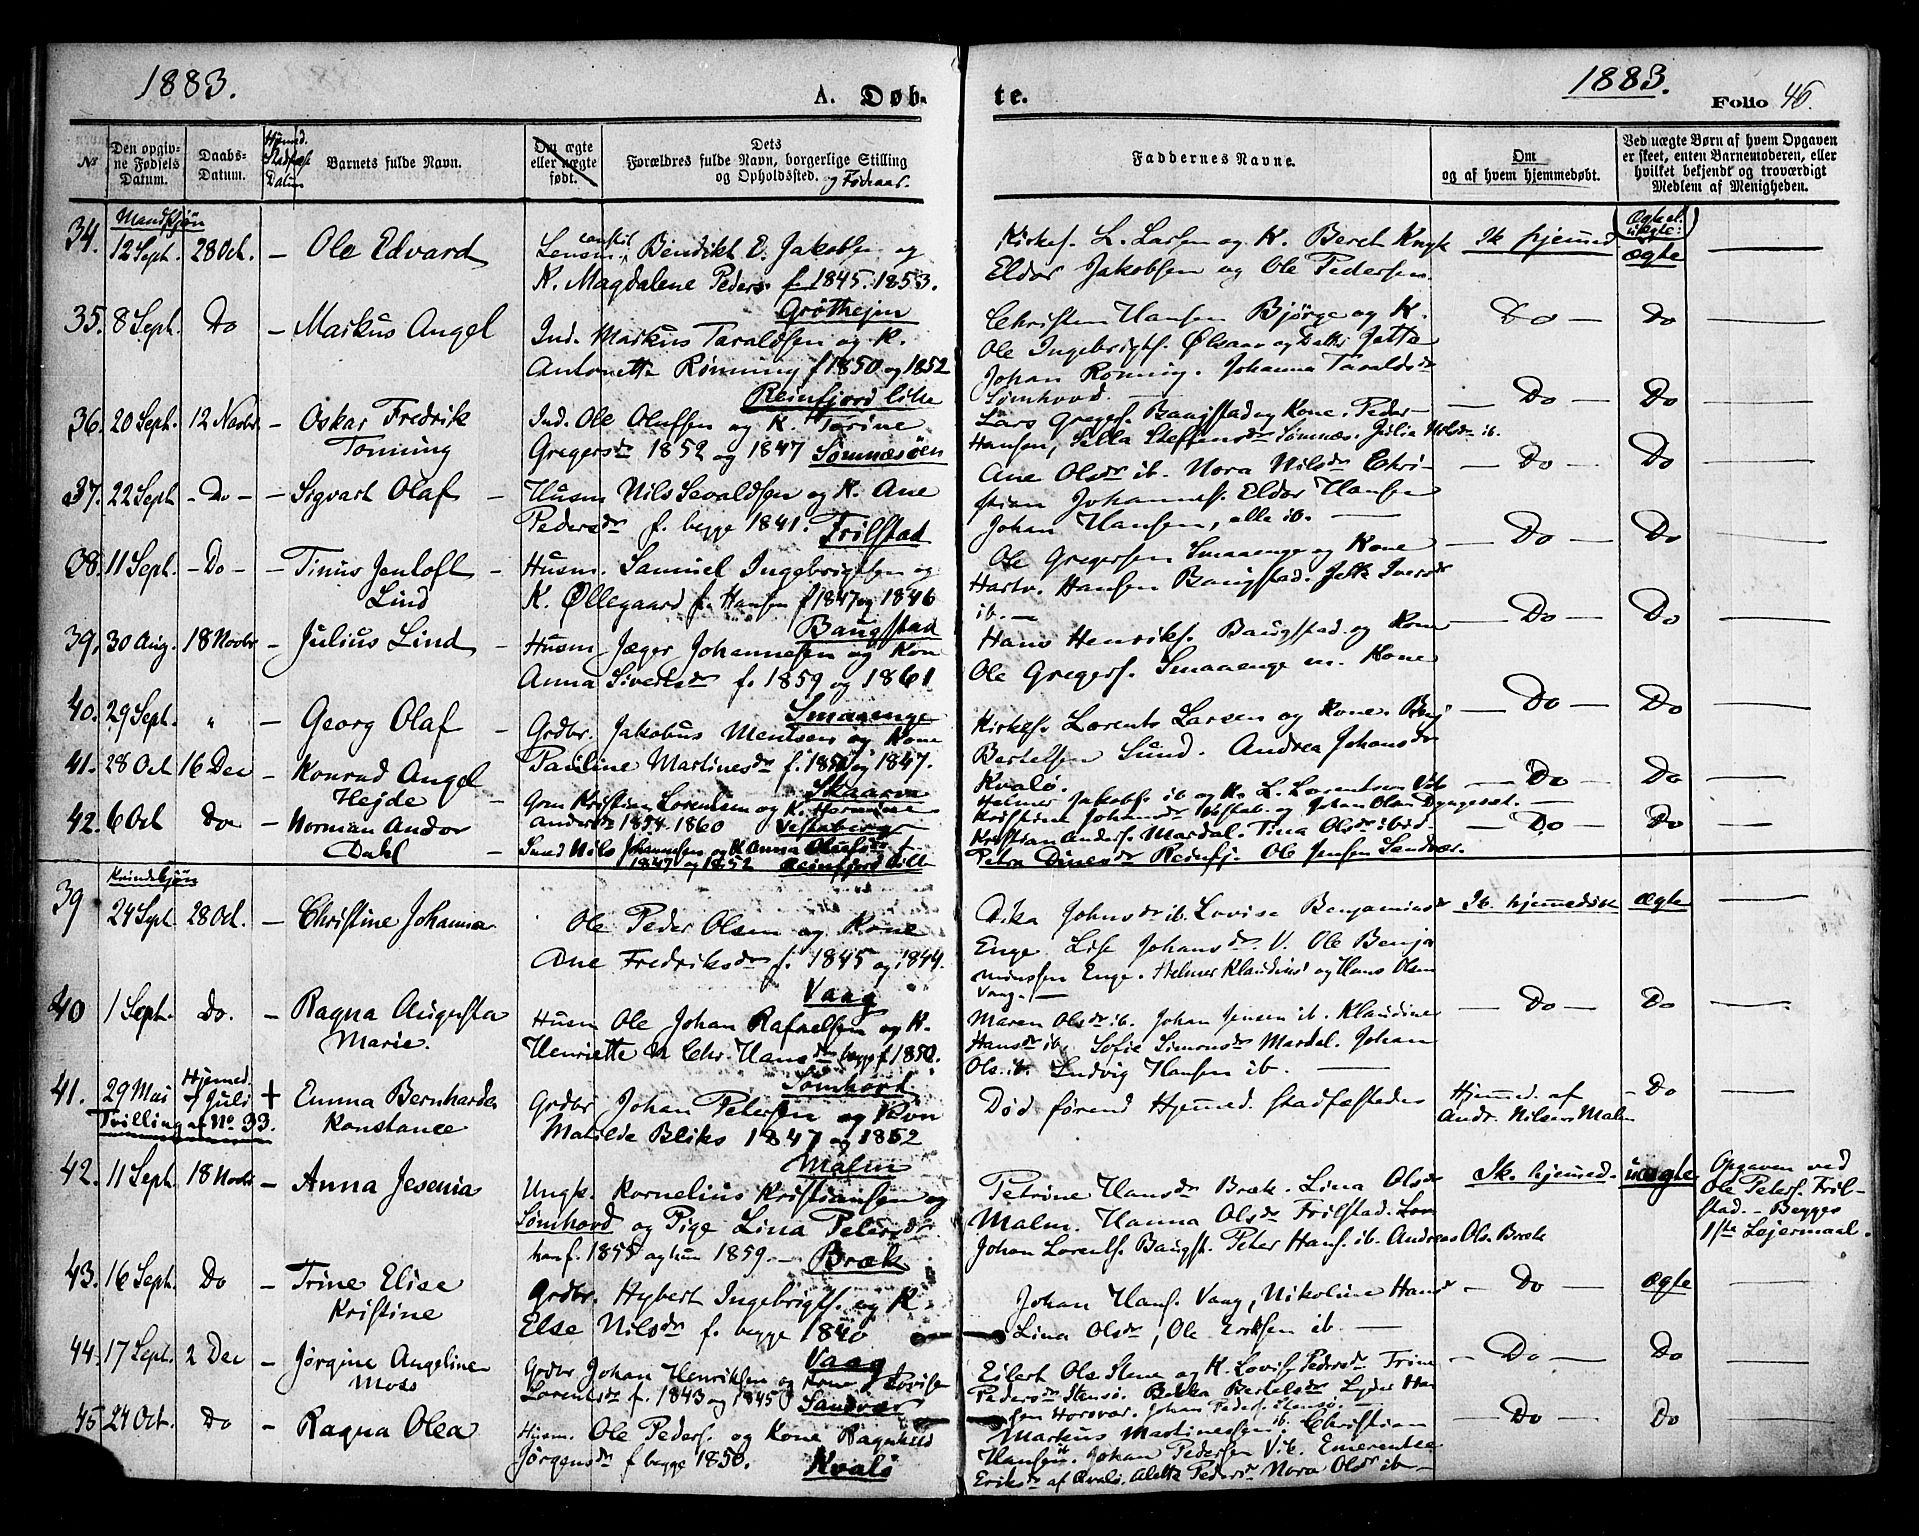 1883.
A. Døb-
te.
1883.
Folio 46.
№
Den opgiv-
ne Fødsels
Datum.
Daabs-
Datum.
Hjemd.
Stadfæst
Datum
Barnets fulde Navn.
Om ægte
eller uægte
født.
Dets
Forældres fulde Navn, borgerlige Stilling
og Opholdssted. og Fødeaar.
Faddernes Navne.
Om
og af hvem hjemmedøbt.
Ved uægte Børn af hvem Opgaven
er skeet, enten Barnemoderen, eller
hvilket bekjendt og troværdigt
Medlem af Menigheden.
Mandkjøn
34. 12 Sept. 28 Oct. — Ole Edvard
Bendikt E. Jakobsen og
K. Magdalene Peders. f. 1845. 1853.
Grøthejen
Kirkes. L. Larsen og K. Beret
Eldor Jakobsen og Ole Pedersen
Ik hjemmed
Ægte el.
uægte:
ægte
35. 8 Sept. Do — Markus Angel
Ind. Markus Taraldsen og K.
Antonette Rønning f 1850 og 1852
Reinfjord lille
Christen Hansen Bjørge og K.
Ole Ingebrigts. Ølsaar og Datter Jetta
Johan Rønning. Johanna Taraldsdr
Sømhovd.
Do
Do
36. 20 Sept. 12 Novbr — Oskar Fredrik
Tonning
Ind. Ole Olufsen og K. Torine
Gregersdr 1852 og 1847 Sømnæsøen
Lars Gregers. Baugstad og Kone. Peder
Hansen, Sella Steffensdr Sømnæs. Julia Nilsdr ib.
— Do —
Do
37. 22 Sept — Do — — Sigvart Olaf —
Husm Nils Sevaldsen og K. Ane
Pedersdr f. begge 1841. Trilstad
Ane Olsdr ib. Nora Nilsdr Chri-
stian Johannes. Eldor Hansen
Johan Hansen, alle ib. —
— Do —
Do
38. 11 Sept. — Do — — Tinus Jentoft —
Lind
Husm. Samuel Ingebrigtsen og
K. Øllegaard f. Hansen f 1847 og 1846
Baugstad
Ole Gregersen Smaaenge og Kone
Hartv. Hansen Baugstad. Jetta Iversdr
ib. —
— Do —
Do
39. 30 Aug. 18 Novbr — Julius Lind —
Husm Jæger Johannesen og Kon
Anna Sivertsdr f. 1859 og 1861
Smaaenge
Hans Henriks. Baugstad og Kone
Ole Gregers. Smaaenge m. Kone
— Do —
Do
40. 29 Sept. " — Georg Olaf —
Grdbr. Jakobus Mentsen og Kone
Pauline Martinesdr f. og 1847.
Skaarva
Kirkes. Lorents Larsen og Kone. Benj
Bertelsen Sund. Andrea Johansdr
Kvalø.
— Do —
Do
41. 28 Oct 16 Dec — Konrad Angel
Hejde —
Kristian Lorentsen og K.
Andersdr 1854 1860
Helmer Jakobs. ib og K. L. Lorentsen
Kristine Johansdr Johan Olsn Dyngeset. —
— Do —
Do
42. 6 Oct Do — Norman Andor
Dahl —
Nils Johannesen og K Anna
1847 og 1852 Reinfjord lille
Kristian Anders. Mardal. Tina Olsdr ibid
Petra Dinesdr Reinfj. Ole Jensen Sandvær.
— Do —
Do
Kvindekjøn
39 24 Sept 28 Oct. — Christine Johanna
Ole Peder Olsen og Kone
Ane Fredriksdr f. 1845 og 1844.
Vaag
Johnsdr ib. Lovise Benjaminsdr
Enge. Lise Johansdr V. Ole Benja
minssen Enge. Helmer Klaudius og Hans Olsen
Vaag. —
Ik. hjemmedøbt
ægte
40 1 Sept. Do. — Ragna Augusta
Marie.
Husm Ole Johan Rafaelsen og K.
Henriette Chr. Hansdr begge f. 1850.
Sømhovd
Maren Olsdr ib. Johan Jensen ib. Klaudine
Hansdr ib. Sofie Simonsdr Mardal. Johan
Ols. ib. Ludvig Hansen ib. —
— Do —
Do
41. 29 Mai Hjemmed.
7 Juli + Emma Bernharda
Tvilling af No 33.
Konstance
Grdbr Johan Petersen og Kon
Matilde Bliks 1847 og 1852
Malm
Død førend Hjemmed. stadfæstedes
Hjemmed. af
Andr. Nilsen Malm
— Do
42. 11 Sept 18 Novbr — Anna Jesenia
Ungk. Kornelius Kristiansen og
Sømhovd og Pige Lina Petersdr
han f. 1855 og hun 1859. — Bræk
Petrine Hansdr Bræk. Lina Olsdr
Malm. Hanna Olsdr Trilstad.
Johan Lorents. Baugst. Peter Hans. ib. Andreas Ols. Bræk
Ik. hjemmed.
uægte
Opgaven ved
Ole Peters. Tril-
stad. — Begges
1ste Lejermaal.
43. 16 Sept. Do — Trine Elise
Kristine
Grdbr. Hybert Ingebrigts. og K
Else Nilsdr f. begge 1840
Vaag
Johan Hans. Vaag, Nikoline Hansdr
Lina Olsdr, Ole Eriksen ib. —
— Do —
ægte
44. 17 Sept. 2 Dec — Jørgine Angeline
Moss
Grdbr Johan Henriksen og Kone Lovise
Lorentsdr f. 1843 og 1845 Sandvær
Eilert Ols. Stene og K. Lovise Pedersdr Trine
Pedersdr Stensø. Bekka Bertelsdr Lyder Han
sen Horsvær. Johan Peders. Stensø. —
— Do —
Do
45 24 Oct. Do — Ragna Olea
Husm. Ole Peders. og Kone Ragnhild
Jørgensdr f begge 1850. Kvalø
Markus Martinessen ib. Christian
Hansen ib. Johan Pedersen Vik. Emerentse
Eriksdr af Kvalø. Aletta Pedersdr Nora Olsdr ib —
— Do —
Do